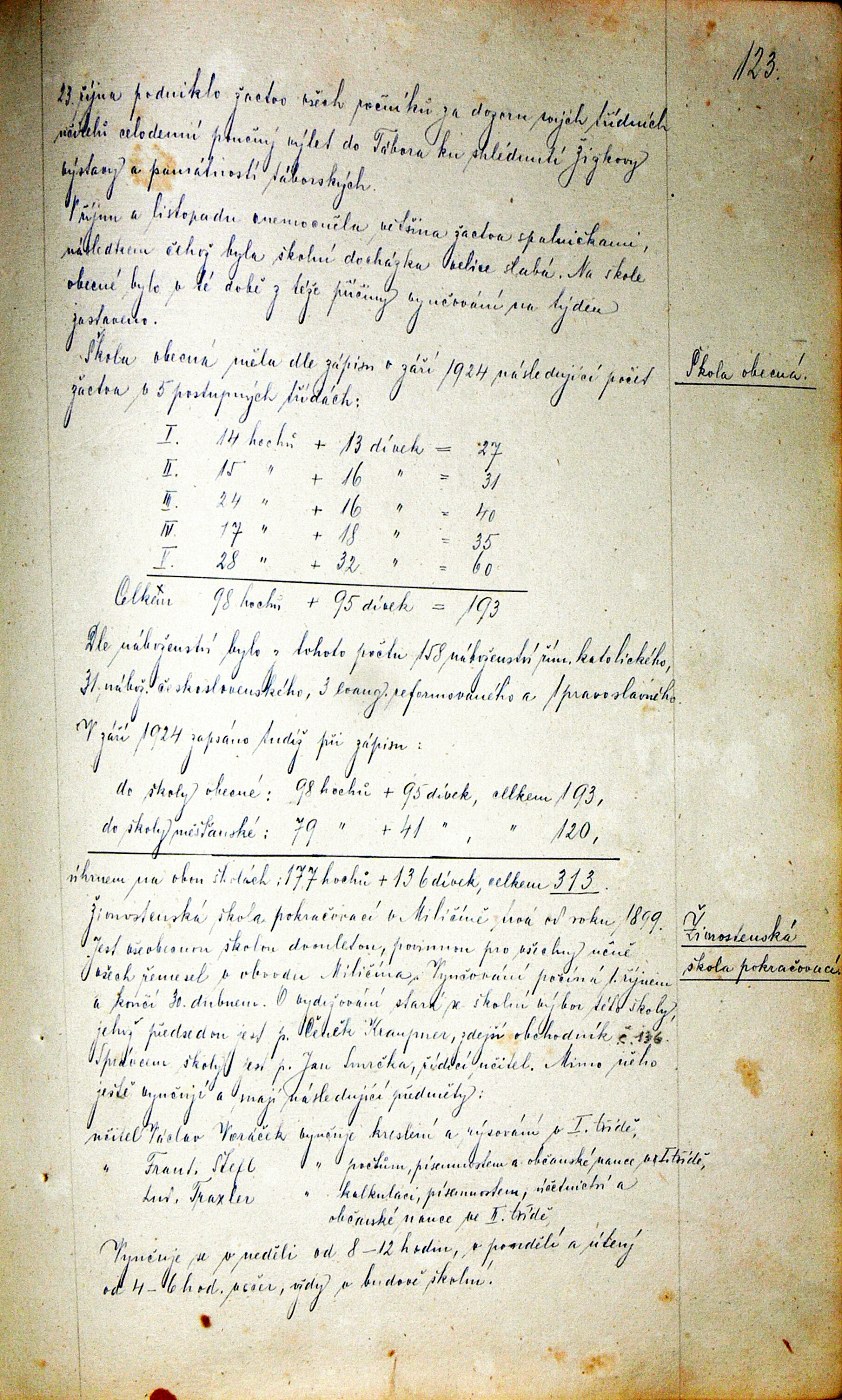 123.
23. října podniklo žactvo všech ročníků za dozoru svých třídních
učitelů celodenní poučný výlet do Tábora ku shlédnutí Žižkovy
výstavy a památností táborských.
V říjnu a listopadu onemocněla většina žactva spalničkami,
následkem čehož byla školní docházka velice slabá. Na škole
obecné bylo v té době z téže příčiny vyučování na týden
zastaveno.
Škola obecná.
Škola obecná měla dle zápisu v září 1924 následující počet
žactva v 5 postupných třídách:
I. 14 hochů + 13 dívek = 27
II. 15 " + 16 " = 31
III. 24 " + 16 " = 40
IV. 17 " + 18 " = 35
V. 28 " + 32 " = 60
Celkem 98 hochů + 95 dívek = 193
Dle náboženství bylo z tohoto počtu 158 náboženství řím. katolického,
31 nábož. československého, 3 evang. reformovaného a 1 pravoslavného.
V září 1924 zapsáno tudíž při zápisu:
do školy obecné: 98 hochů + 95 dívek, celkem 193,
do školy měšťanské: 79 " + 41 " , " 120,
úhrnem na obou školách: 177 hochů + 136 dívek, celkem 313.
Živnostenská
škola pokračovací.
Živnostenská škola pokračovací v Miličíně, nová od roku 1899.
Jest všeobecnou školou dvouletou, povinnou pro všechny učně
všech řemesel v obvodu Miličína. Vyučování počíná 1. říjnem
a končí 30. dubnem. O vydržování stará se školní výbor této školy,
jehož předsedou jest p. Čeněk Kraupner, zdejší obchodník č. 136.
Správcem školy jest p. Jan Smrčka, řídící učitel. Mimo něho
ještě vyučují a mají následující předměty:
učitel Václav Voráček vyučuje kreslení a rýsování v I. třídě,
" Frant. Štefl " počtům, písemnostem a občanské nauce v I. třídě,
Lud. Traxler " kalkulaci, písemnostem, účetnictví a
občanské nauce ve II. třídě
Vyučuje se v neděli od 8–12 hodin, v pondělí a úterý
od 4–6 hod. večer, vždy v budově školní.